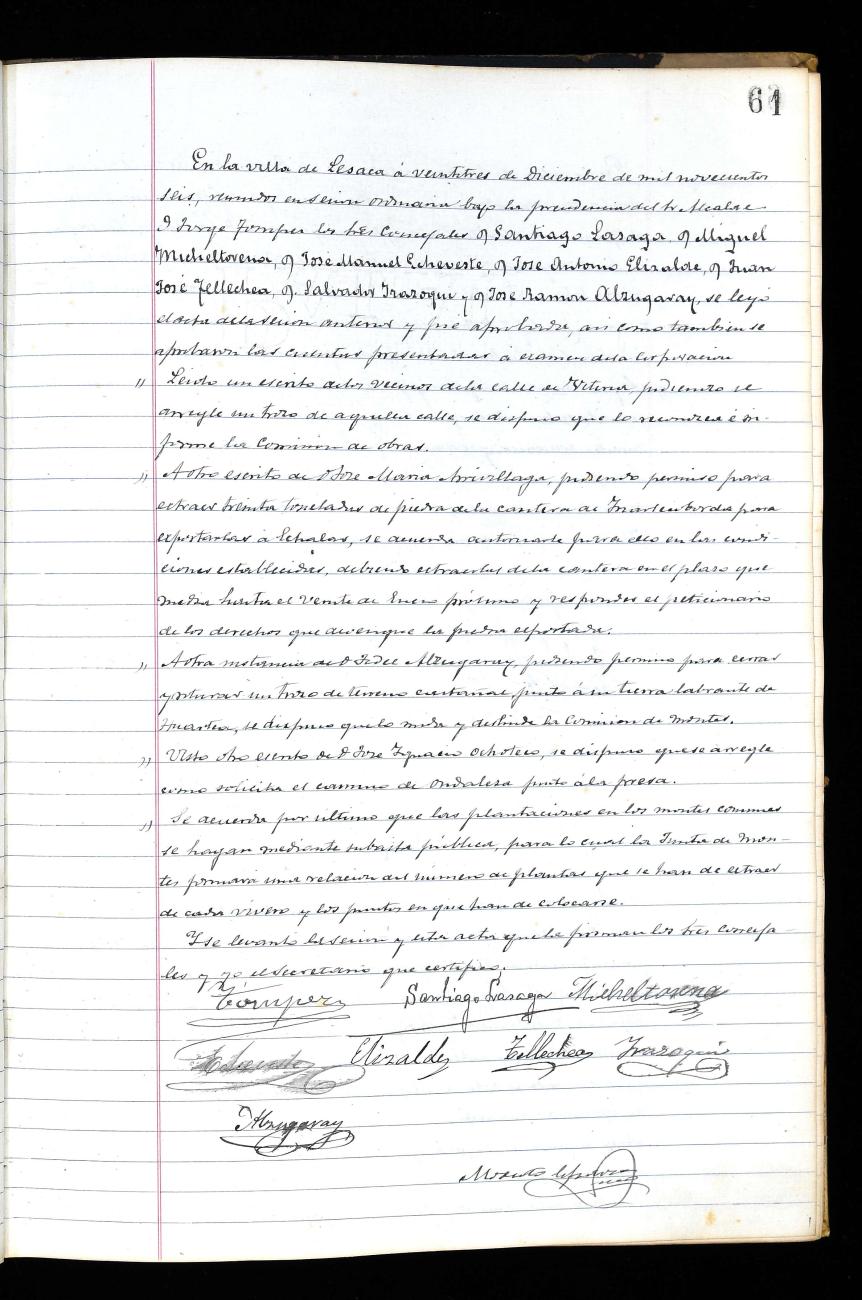 61
En la villa de Lesaca á veintitres de Diciembre de mil novecientos
seis, reunidos en sesion ordinaria bajo la presidencia del Sr Alcalde
D Jorge Tomper los Sres Concejales D Santiago Lasaga, D Miguel
Micheltorena, D José Manuel Echeveste, D José Antonio Elizalde, D Juan
José Tellechea, D. Salvador Irazoqui y D José Ramon Alzugaray, se leyó
el acta de la sesion anterior y fué aprobada, asi como tambien se
aprobaron las cuentas presentadas á examen de la Corporacion
" Leido un escrito de los vecinos de la calle de Vitoria, pidiendo se
arregle un trozo de aquella calle, se dispuso que lo reconozca é in-
forme la Comision de obras.
" A otro escrito de D José Maria Arrivillaga, pidiendo permiso para
extraer treinta toneladas de piedra de la cantera de para
exportarlas á Echalar, se acuerda autorizarle para ello en las condi-
ciones establecidas, debiendo extraerlas de la cantera en el plazo que
media hasta el veinte de Enero próximo y responder el peticionario
de los derechos que devengue la piedra exportada.
" A otra instancia de D Fidel Alzugaray, pidiendo permiso para cerrar
y roturar un trozo de terreno junto á su tierra labrante de
Huartea, se dispuso que lo mida y deslinde la Comision de Montes.
" Visto otro escrito de D José Ignacio Ochoteco, se dispuso que se arregle
como solicita el camino de Ondalaza junto á la presa.
" Se acuerda por ultimo que las plantaciones en los montes comunes
se hagan mediante subasta pública, para lo cual la Junta de Mon-
tes formará una relacion del número de plantas que se han de extraer
de cada vivero y los puntos en que han de colocarse.
Y se levantó la sesion y esta acta que la firman los Sres Conceja-
les y yo el Secretario que certifico.
Tomper Santiago Lasaga Micheltorena
Echeveste Elizalde Tellechea Irazoqui
Alzugaray